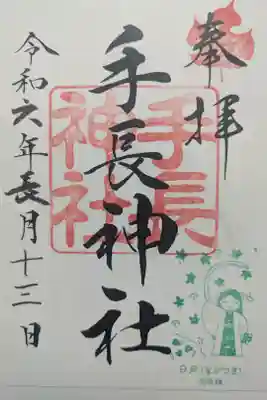 奉拝
手長神社
手長神社
令和六年長月十三日